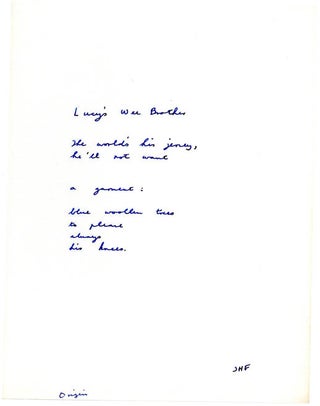 Lucy's Wee Brother
The world's his jersey,
he'll not want
a garment:
blue woollen trees
to please
always
his knees.
JHF
Origin